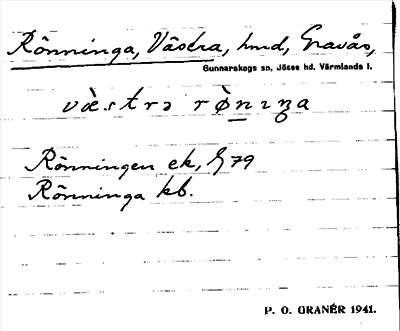 Rönninga, Västra, hmd, Gravås,
Gunnarskogs sn, Jösse hd. Värmlands l.
væ̀strə rø̀nɪŋa
Rönningen ek, G 79
Rönninga kb.
P. O. GRANÉR 1941.